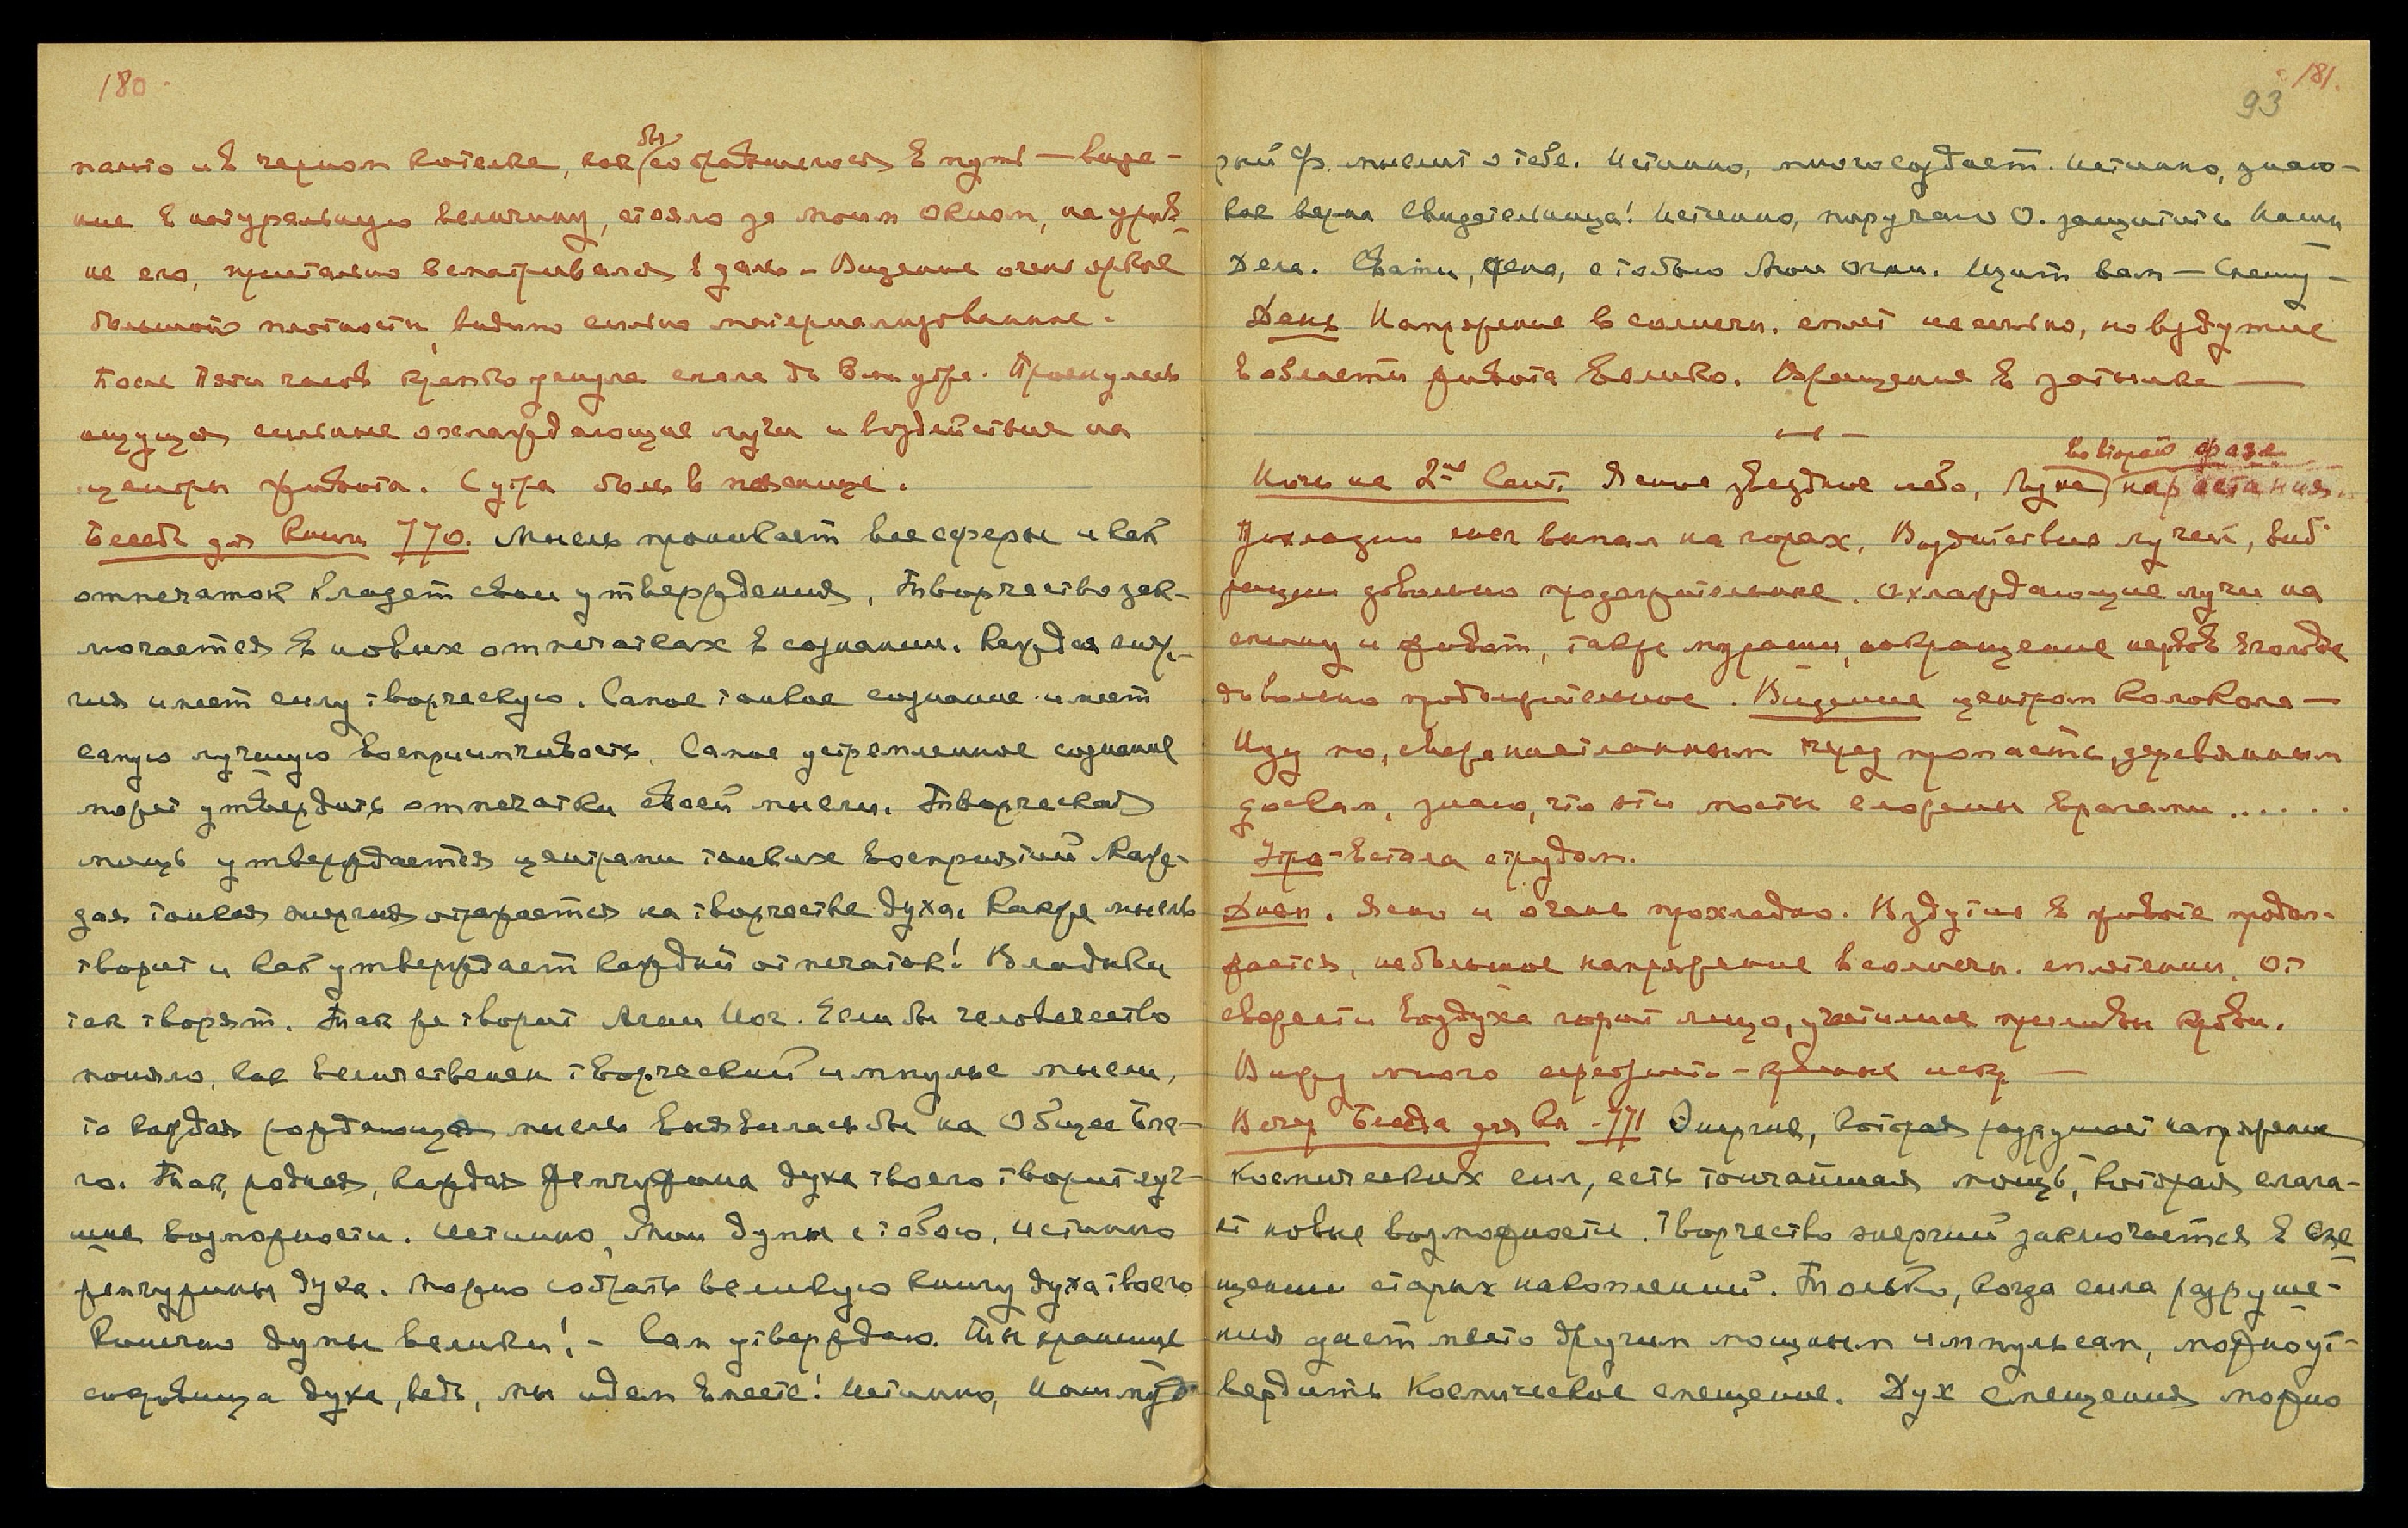 180
пальто и в черном котелке, как бы собравшегося в путь — виде-
ние в натуральную величину, стояло за моим окном, на уров
не его, пристально всматривался в даль – Видение очень яркое
большой плотности, видимо сильно материализованное.
После пяти часов крепко уснула спала до 8ми утра. Проснулась
ощущая сильные охлаждающие лучи и воздействия на
центры живота. С утра боль в пояснице.
Беседа для Книги 770. Мысль пронизывает все сферы и как
отпечаток кладет свои утверждения, Творчество зак-
лючается в новых отпечатках в сознании. Каждая энер-
гия имеет силу творческую. Самое тонкое сознание имеет
самую лучшую восприимчивость. Самое устремленное сознание
может утвердить отпечатки своей мысли. Творческая
мощь утверждается центрами тонких восприятий. Каж-
дая тонкая энергия отражается на творчестве духа. Как же мысль
творит и как утверждает каждый отпечаток! Владыки
так творят. Так же творит Агни Йог. Если бы человечество
поняло, как величественен творческий импульс мысли,
то каждая рождающая мысль выявилась бы на Общее Бла-
го. Так, родная, каждая жемчужина духа твоего творит луч-
шие возможности. Истинно, Мои думы с тобою, истинно
жемчужины духа. Можно собрать великую книгу духа твоего
Конечно думы велики! – Сам утверждаю. Ты хранишь
сокровища духа, ведь, мы идем вместе! Истинно, Наш муд
181.
93
рый Ф. мыслит о тебе. Истинно, много создает. Истинно, знаю-
как верна Свидетельница! Истинно, поручаю О. защитить Наши
Дела. Свати, жена, с тобою Мои огни. Щит вам — Спешу –
День Напряжение в солнечн. сплет несильно, но вздутие
в области живота велико. Вращение в затылке —
во второй фазе
Ночь на 2ое Сент. Ясное звездное небо, Луна нарастания.
Прохладно снег выпал на горах. Воздействие лучей, виб
рации довольно продолжительные. Охлаждающие лучи на
спину и живот, также мурашки, сокращение нервов
довольно продолжительное. Видение центром Колокола —
Иду по, свеже настланным через пропасть, деревянным
доскам, знаю, что эти мосты сложены врагами ......
Утро – Встала с трудом.
Днем. Ясно и очень прохладно. Вздутие в животе продол-
жается, небольшое напряжение в солнечн. сплетении. От
свежести воздуха горит лицо, участились приливы крови.
Вижу много серебристо – красные искр —
Вечер Беседа для Кн – 771 Энергия, которая разрушает напряжение
Космических сил, есть тончайшая мощь, которая слага-
ет новые возможности. Творчество энергий заключается в сме
щении старых накоплений. Только, когда сила разруше-
ния дает место другим мощным импульсам, можно ут-
вердить Космическое смещение. Дух смещения можно